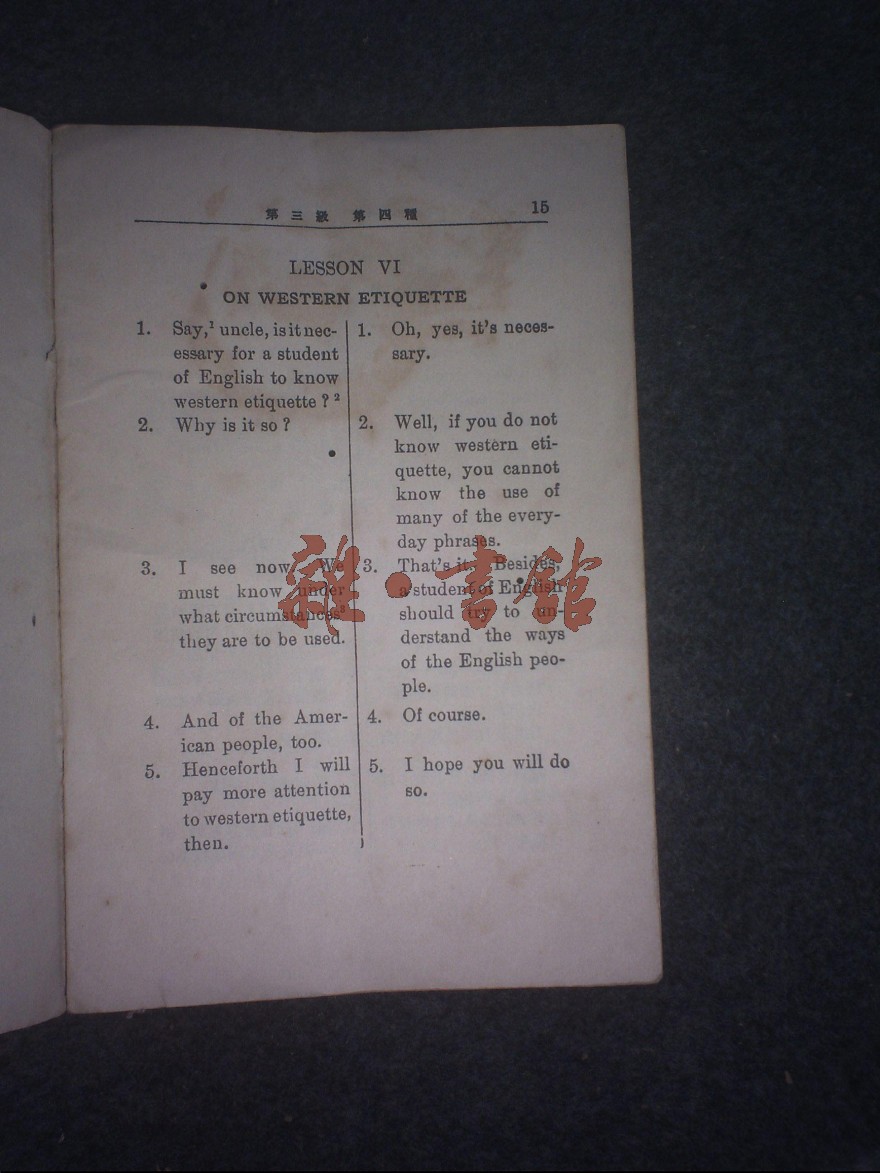 第三級 第四種 15
LESSON VI
ON WESTERN ETIQUETTE
1. Say,¹ uncle, is it nec-
essary for a student
of English to know
western etiquette ? ²
2. Why is it so ?
3. I see now. We
must know under
what circumstances³
they are to be used.
4. And of the Amer-
ican people, too.
5. Henceforth I will
pay more attention
to western etiquette,
then.
1. Oh, yes, it's neces-
sary.
2. Well, if you do not
know western eti-
quette, you cannot
know the use of
many of the every-
day phrases.
3. That's it. Besides,
a student of English
should try to un-
derstand the ways
of the English peo-
ple.
4. Of course.
5. I hope you will do
so.
雜·書館